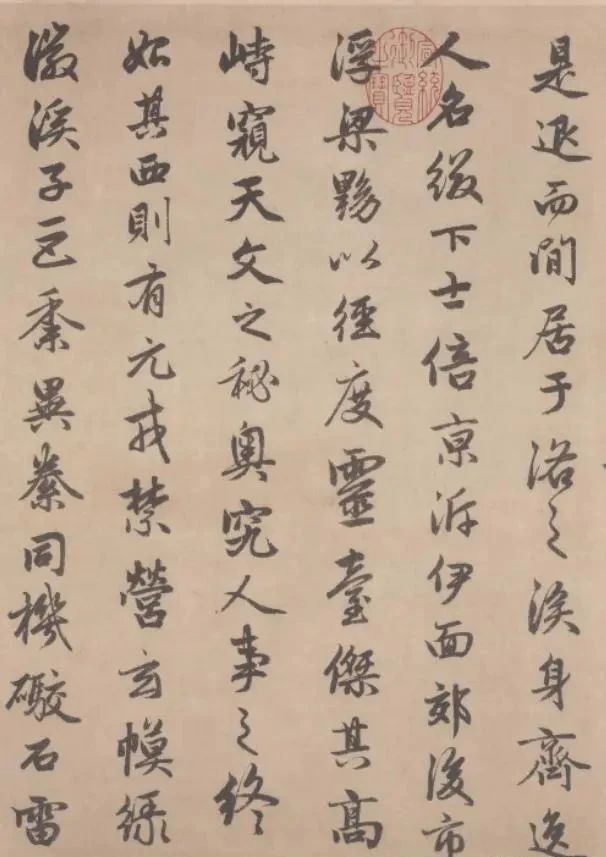 是退而間居于洛之涘身齊逸
人名綴下士倍京泝伊面郊後市
浮梁黝以徑度靈臺傑其高
峙窺天文之秘奧究人事之終
始其西則有元戎禁營玄幙綠
徽溪子巨黍異絭同機礮石雷
宣統御覽之寶